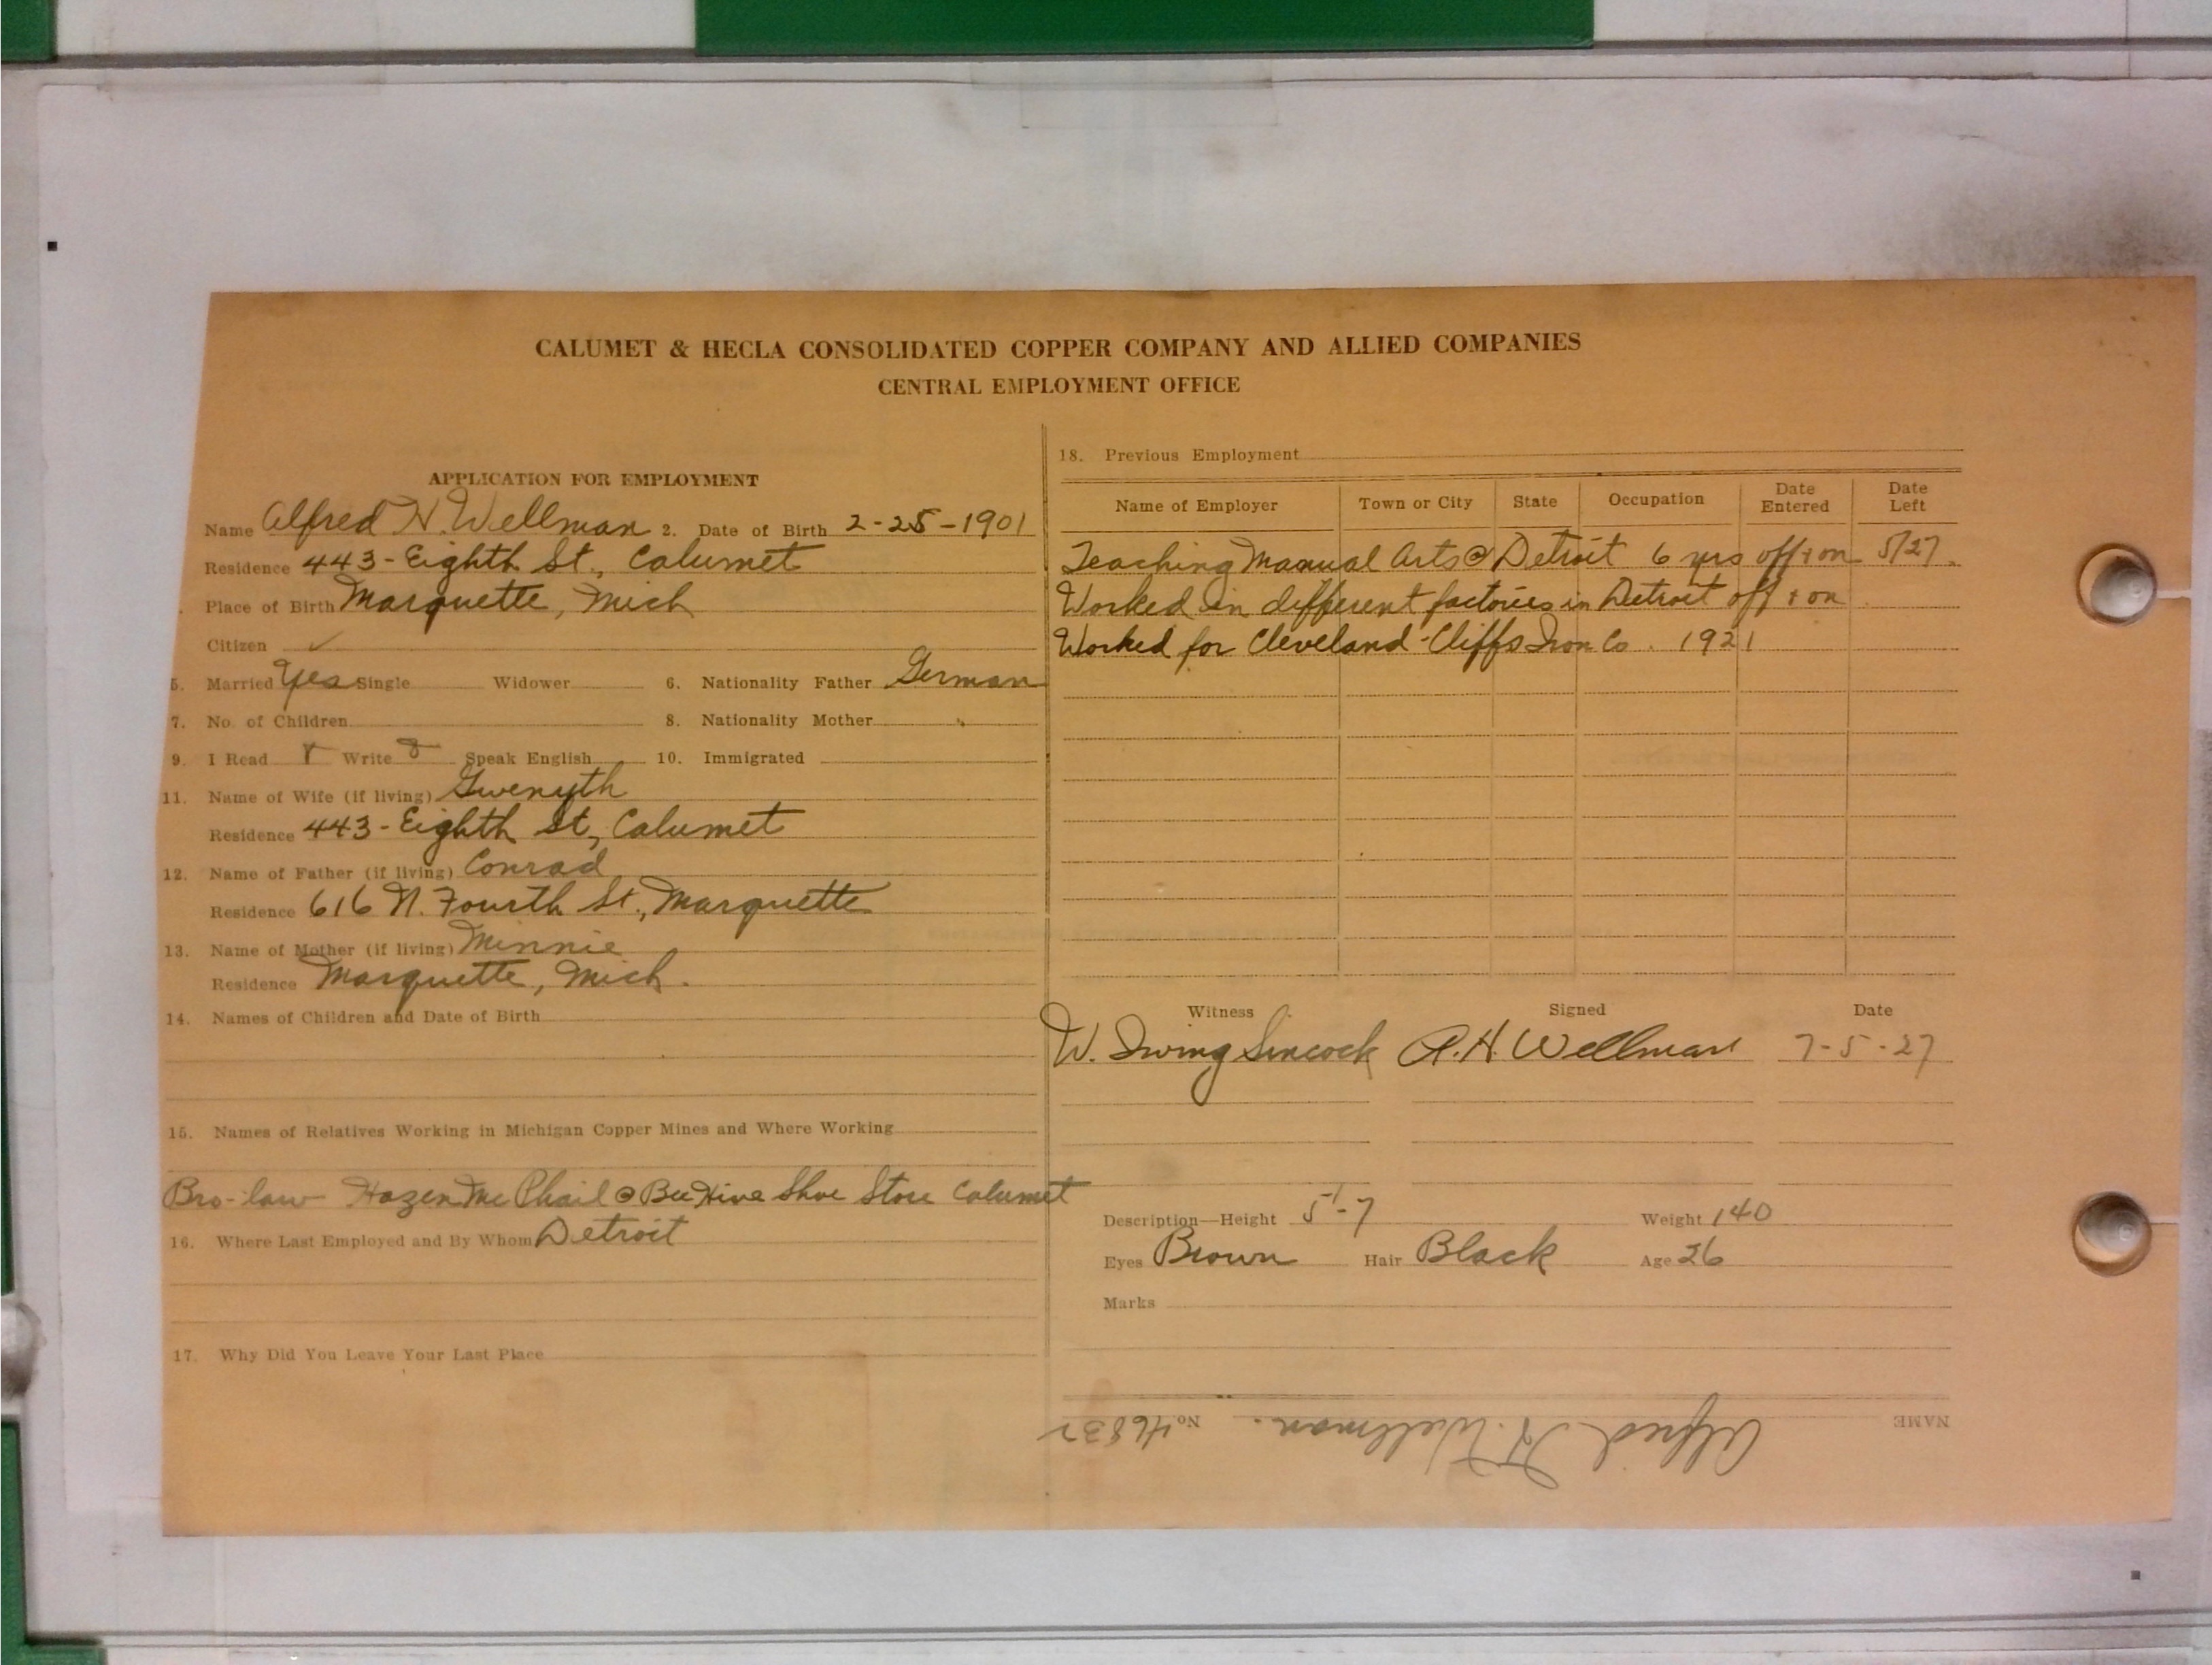 CALUMET & HECLA CONSOLIDATED COPPER COMPANY AND ALLIED COMPANIES
CENTRAL EMPLOYMENT OFFICE
APPLICATION FOR EMPLOYMENT
Name Alfred H. Wellman 2. Date of Birth 2-25-1901
Residence 443-Eighth St., Calumet
Place of Birth Marquette, Mich
Citizen ✓
5. Married Yes Single Widower 6. Nationality Father German
7. No. of Children 8. Nationality Mother "
9. I Read Write Speak English 10. Immigrated
11. Name of Wife (if living) Gwenyth
Residence 443-Eighth St, Calumet
12. Name of Father (if living) Conrad
Residence 616 N. Fourth St., Marquette
13. Name of Mother (if living) Minnie
Residence Marquette, Mich.
14. Names of Children and Date of Birth
15. Names of Relatives Working in Michigan Copper Mines and Where Working
Bro-law Hazen McPhail @ Bee Hive Shoe Store Calumet
16. Where Last Employed and By Whom Detroit
17. Why Did You Leave Your Last Place
18. Previous Employment
Name of Employer Town or City State Occupation Date Entered Date Left
Teaching Manual Arts @ Detroit 6 yrs off + on 5/27.
Worked in different factories in Detroit off + on
Worked for Cleveland-Cliffs Iron Co. 1921
Witness Signed Date
W. Irving Sincock A. H. Wellman 7-5-27
Description—Height 5'-7 Weight 140
Eyes Brown Hair Black Age 26
Marks
NAME Alfred H. Wellman. No. 46832